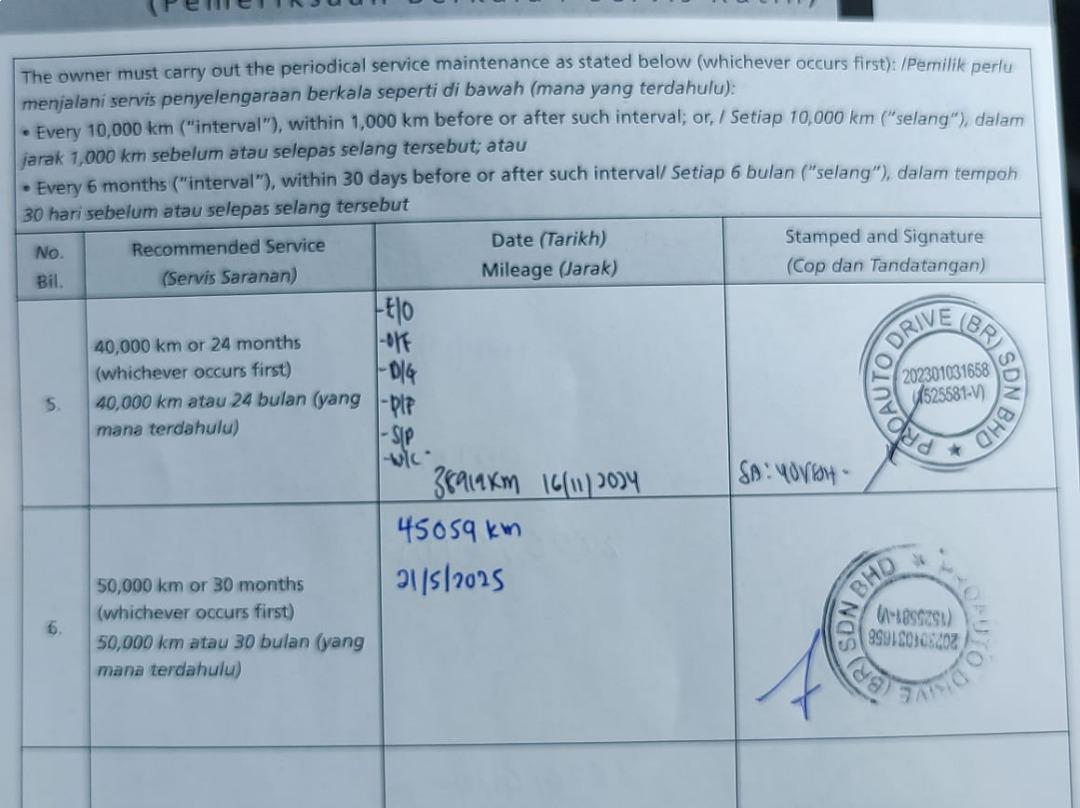 (Pemeriksaan Berkala / Servis Rutin)
The owner must carry out the periodical service maintenance as stated below (whichever occurs first): /Pemilik perlu
menjalani servis penyelengaraan berkala seperti di bawah (mana yang terdahulu):
• Every 10,000 km ("interval"), within 1,000 km before or after such interval; or, / Setiap 10,000 km ("selang"), dalam
jarak 1,000 km sebelum atau selepas selang tersebut; atau
• Every 6 months ("interval"), within 30 days before or after such interval/ Setiap 6 bulan ("selang"), dalam tempoh
30 hari sebelum atau selepas selang tersebut
No.
Bil.
Recommended Service
(Servis Saranan)
Date (Tarikh)
Mileage (Jarak)
Stamped and Signature
(Cop dan Tandatangan)
5.
40,000 km or 24 months
(whichever occurs first)
40,000 km atau 24 bulan (yang
mana terdahulu)
-E/O
-O/F
-D/G
-P/P
-S/P
-W/C
16/11/2024
SA:
PROAUTO DRIVE (BR) SDN BHD
202301031658
(1525581-V)
6.
50,000 km or 30 months
(whichever occurs first)
50,000 km atau 30 bulan (yang
mana terdahulu)
45059 km
21/5/2025
PROAUTO DRIVE (BR) SDN BHD
202301031658
(1525581-V)